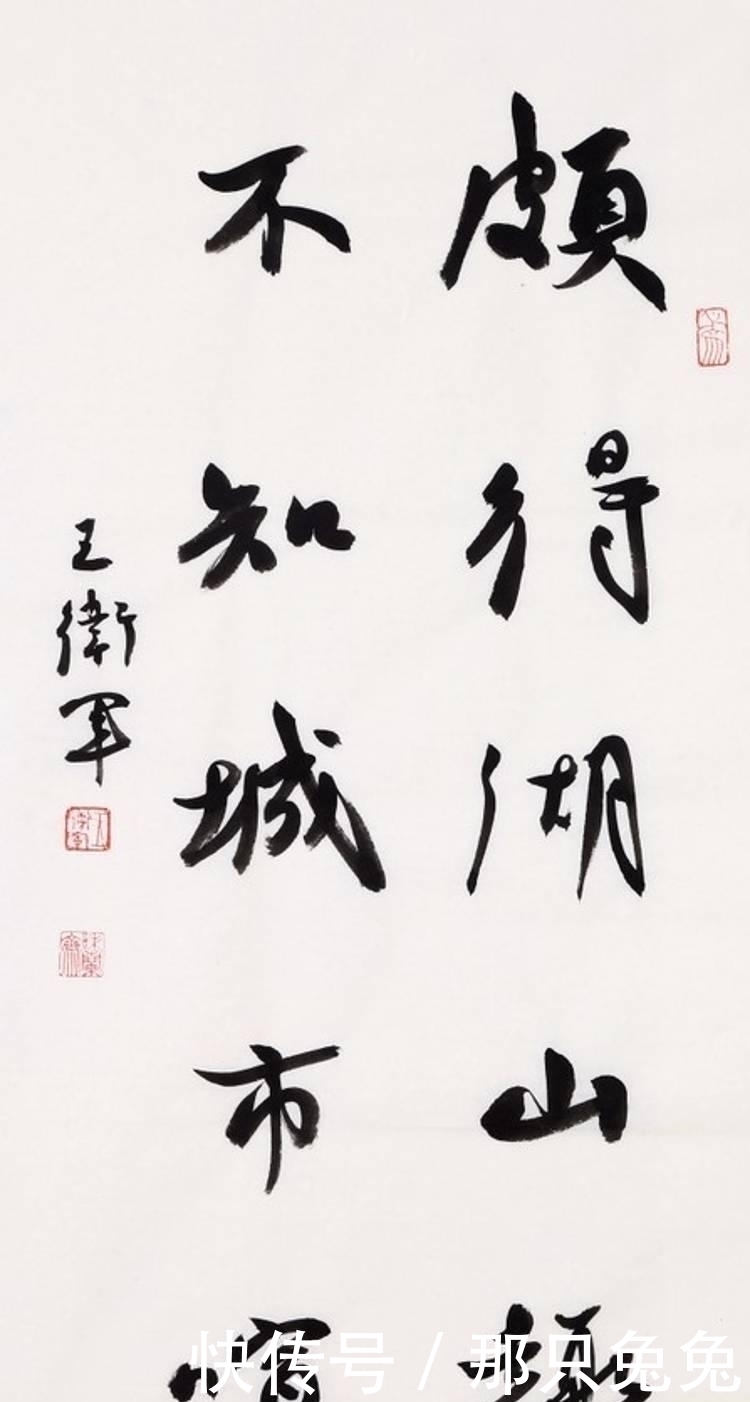 頗得湖山趣
不知城市喧
王衛軍
快传号/那只兔兔